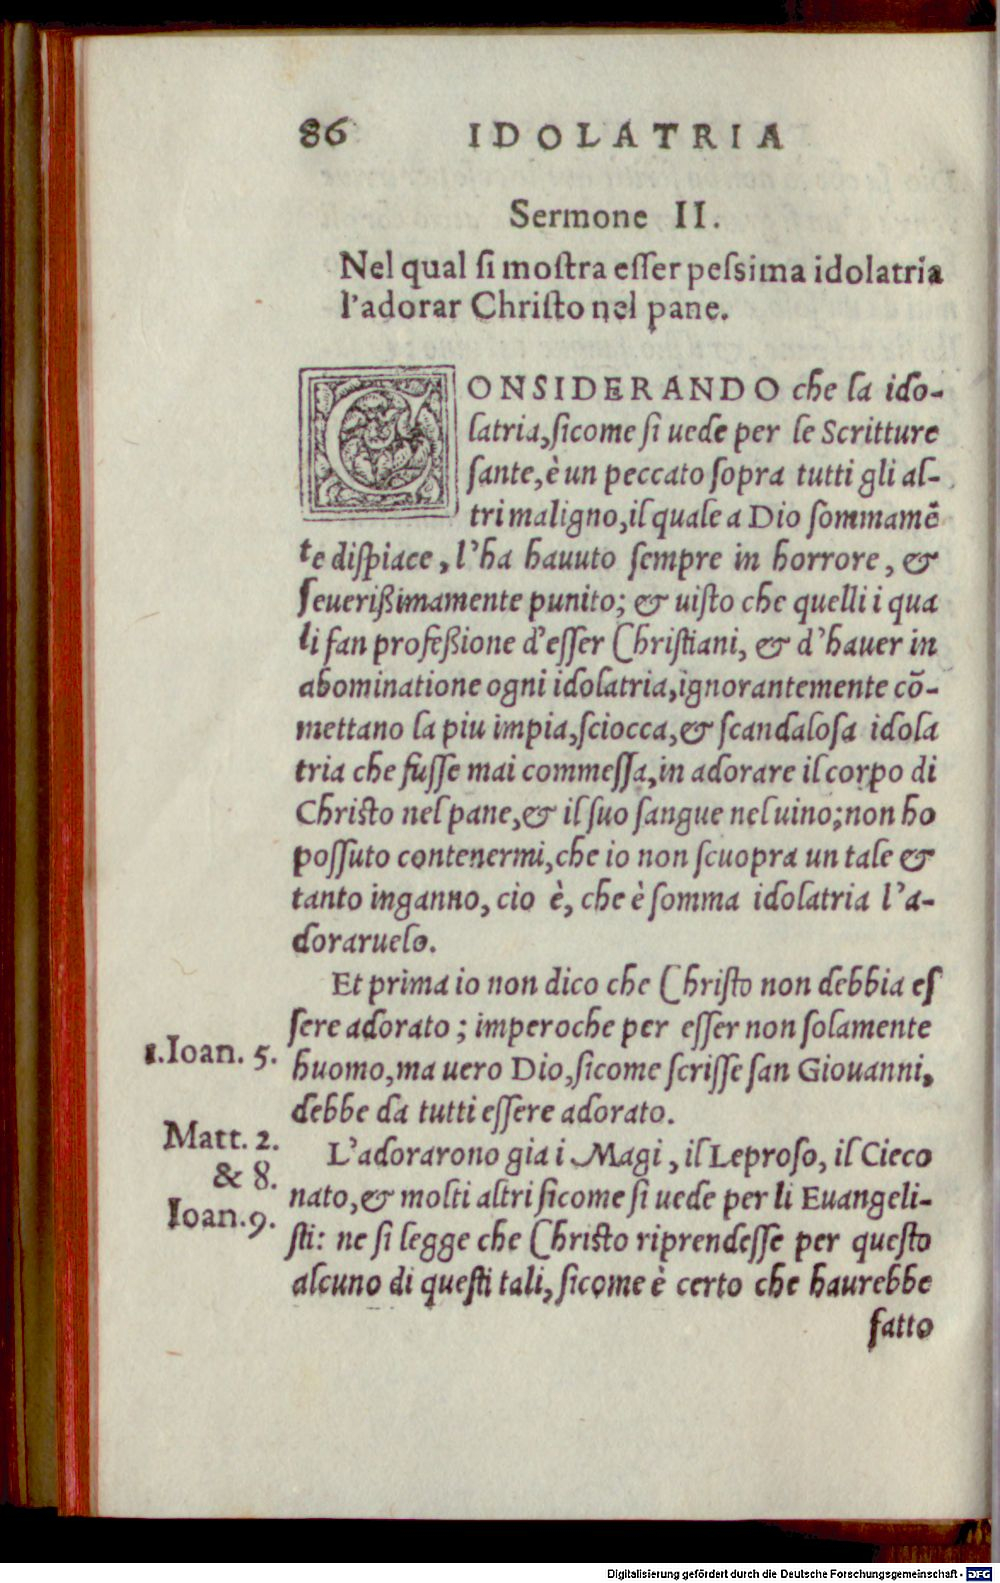 86 IDOLATRIA
Sermone II.
Nel qual ſi moſtra eſſer peſsima idolatria
l'adorar Chriſto nel pane.
CONSIDERANDO che la ido-
latria, ſicome ſi uede per le Scritture
ſante, è un peccato ſopra tutti gli al-
tri maligno, il quale a Dio ſommamẽ
te diſpiace, l'ha hauuto ſempre in horrore, &
ſeuerißimamente punito; & uiſto che quelli i qua
li fan profeßione d'eſſer Chriſtiani, & d'hauer in
abominatione ogni idolatria, ignorantemente cõ-
mettano la piu impia, ſciocca, & ſcandaloſa idola
tria che fuſſe mai commeſſa, in adorare il corpo di
Chriſto nel pane, & il ſuo ſangue nel uino; non ho
poſſuto contenermi, che io non ſcuopra un tale &
tanto inganno, cio è, che è ſomma idolatria l'a-
doraruelo.
Et prima io non dico che Chriſto non debbia eſ
ſere adorato; imperoche per eſſer non ſolamente
1.Ioan. 5.
huomo, ma uero Dio, ſicome ſcriſſe ſan Giouanni,
debbe da tutti eſſere adorato.
Matt. 2.
& 8.
Ioan.9.
L'adorarono gia i Magi, il Leproſo, il Cieco
nato, & molti altri ſicome ſi uede per li Euangeli-
ſti: ne ſi legge che Chriſto riprendeſſe per queſto
alcuno di queſti tali, ſicome è certo che haurebbe
fatto
Digitalisierung gefördert durch die Deutsche Forschungsgemeinschaft - DFG